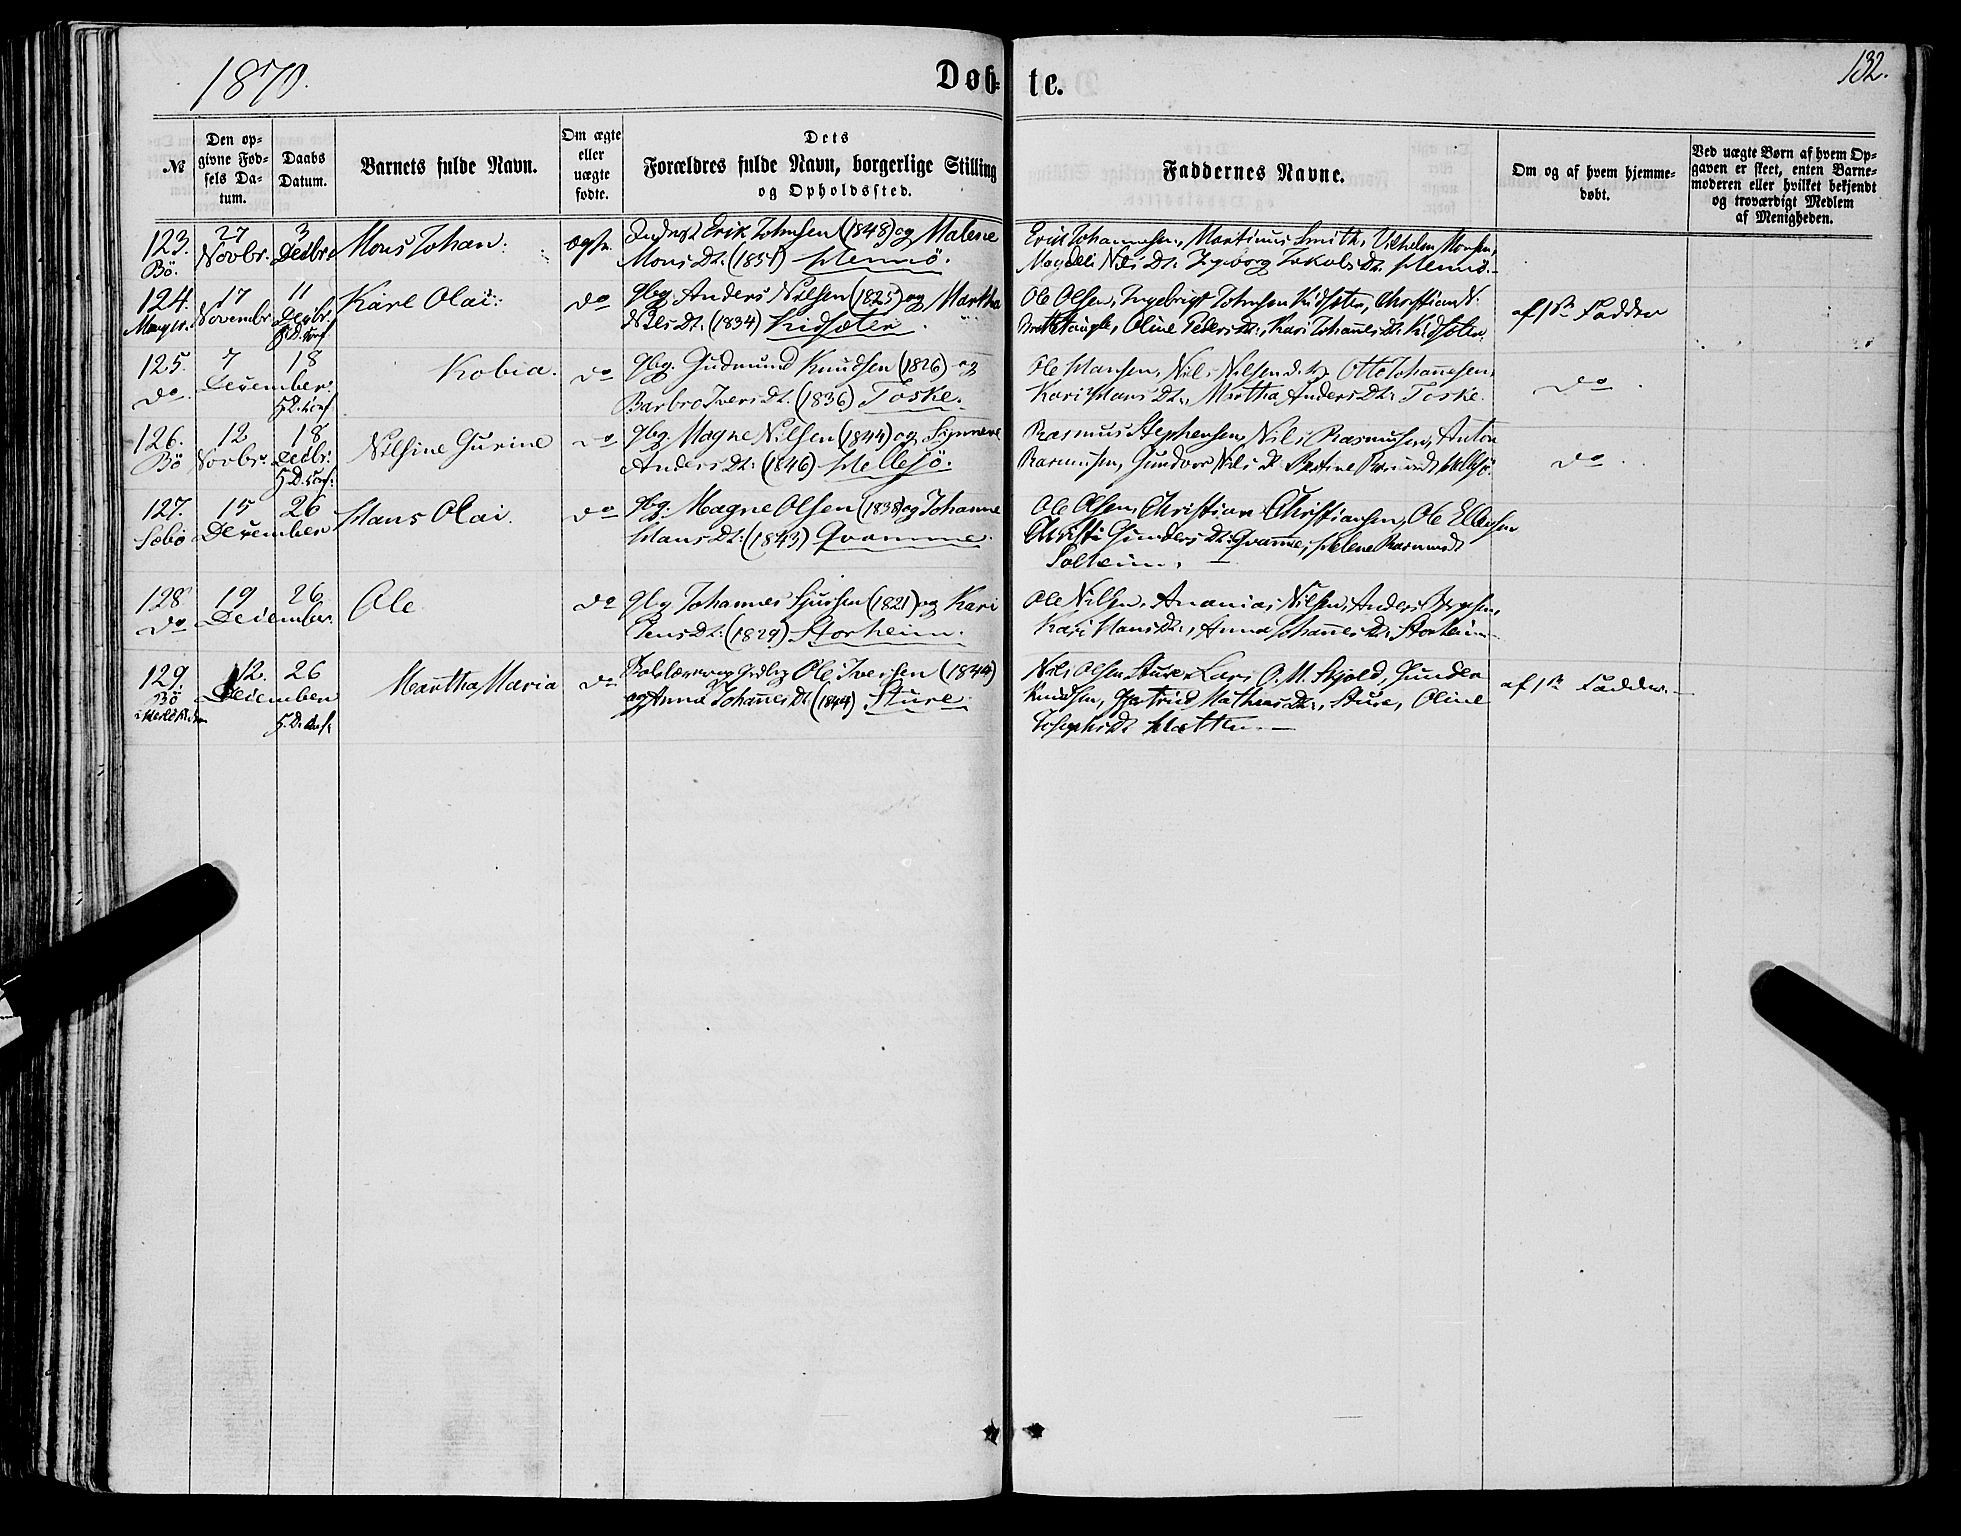 1870.
Døb-
te.
132.
№
Den op-
givne Fød-
sels Da-
tum.
Daabs
Datum.
Barnets fulde Navn.
Om ægte
eller
uægte
fødte.
Dets
Forældres fulde Navn, borgerlige Stilling
og Opholdssted.
Faddernes Navne.
Om og af hvem hjemme-
døbt.
Ved uægte Børn af hvem Op-
gaven er skeet, enten Barne-
moderen eller hvilket bekjendt
og troværdigt Medlem
af Menigheden.
123.
Bö.
27
Novbr.
3
Decbr
Mons Johan.
ægte.
Erik Johnsen (1848) og Malene
Mons Dt. (1851) Hennö.
Erik Johannesen, Martinus Smith, Vilhelm Monsen,
Magdeli Nils Dt. Ingeborg Jakobs Dt. Hennö.
124.
17
Novembr.
11
Decbr.
Karl Olai.
do
gbg. Anders Nilsen (1825) og Martha
Nils Dt. (1834) Kidsæter.
Ole Olsen, Ingebrigt Johnsen Kidsæter, Christian N.
Oline Peders Dt., Kari Johannes Dt. Kidsæter.
af 1ste Fadder
125.
do
7
December
18
Kobia.
do
gbg. Gudmund Knudsen (1826) og
Barbro Ivers Dt. (1836) Toske.
Ole Hansen, Nils Nilsen Otto Johannesen,
Kari Hans Dt., Martha Anders Dt. Toske.
do
126.
Bö
12
Novbr.
18
Decbr.
Nilsine Gurine
do
gbg. Magne Nilsen (1844) og Synneve
Anders Dt. (1846) Hellesö.
Rasmus Stephensen, Nils Rasmusen, Anton
Rasmusen, Gundvor Nils Dt Hellesö.
do
127.
Sæbö
15
December
26
Hans Olai.
do
gbg. Magne Olsen (1838) og Johanne
Hans Dt. (1843) Qvamme.
Ole Olsen, Christian Christiansen, Ole Ellensen
Christi Gunders Dt. Qvamme, Helene Rasmusdt
Solheim.
128.
do
19
December.
26
Ole
do
gbg Johannes Sjursen (1821) og Kari
Jens Dt. (1829) Storheim.
Ole Nilsen, Ananias Nilsen, Anders
Kari Hans Dt., Anna Johannes Dt. Storheim
129.
Bö
12.
December
26
Martha Maria
do
Ole Iversen (1844)
og Anna Johannes Dt. (1844) Sture.
Nils Olsen Sture, Lars O. M. Skjold, Gunder
Knudsen, Gjertrud Mathias Dt., Sture, Oline
Josephs Dt.
af 1ste Fadder.